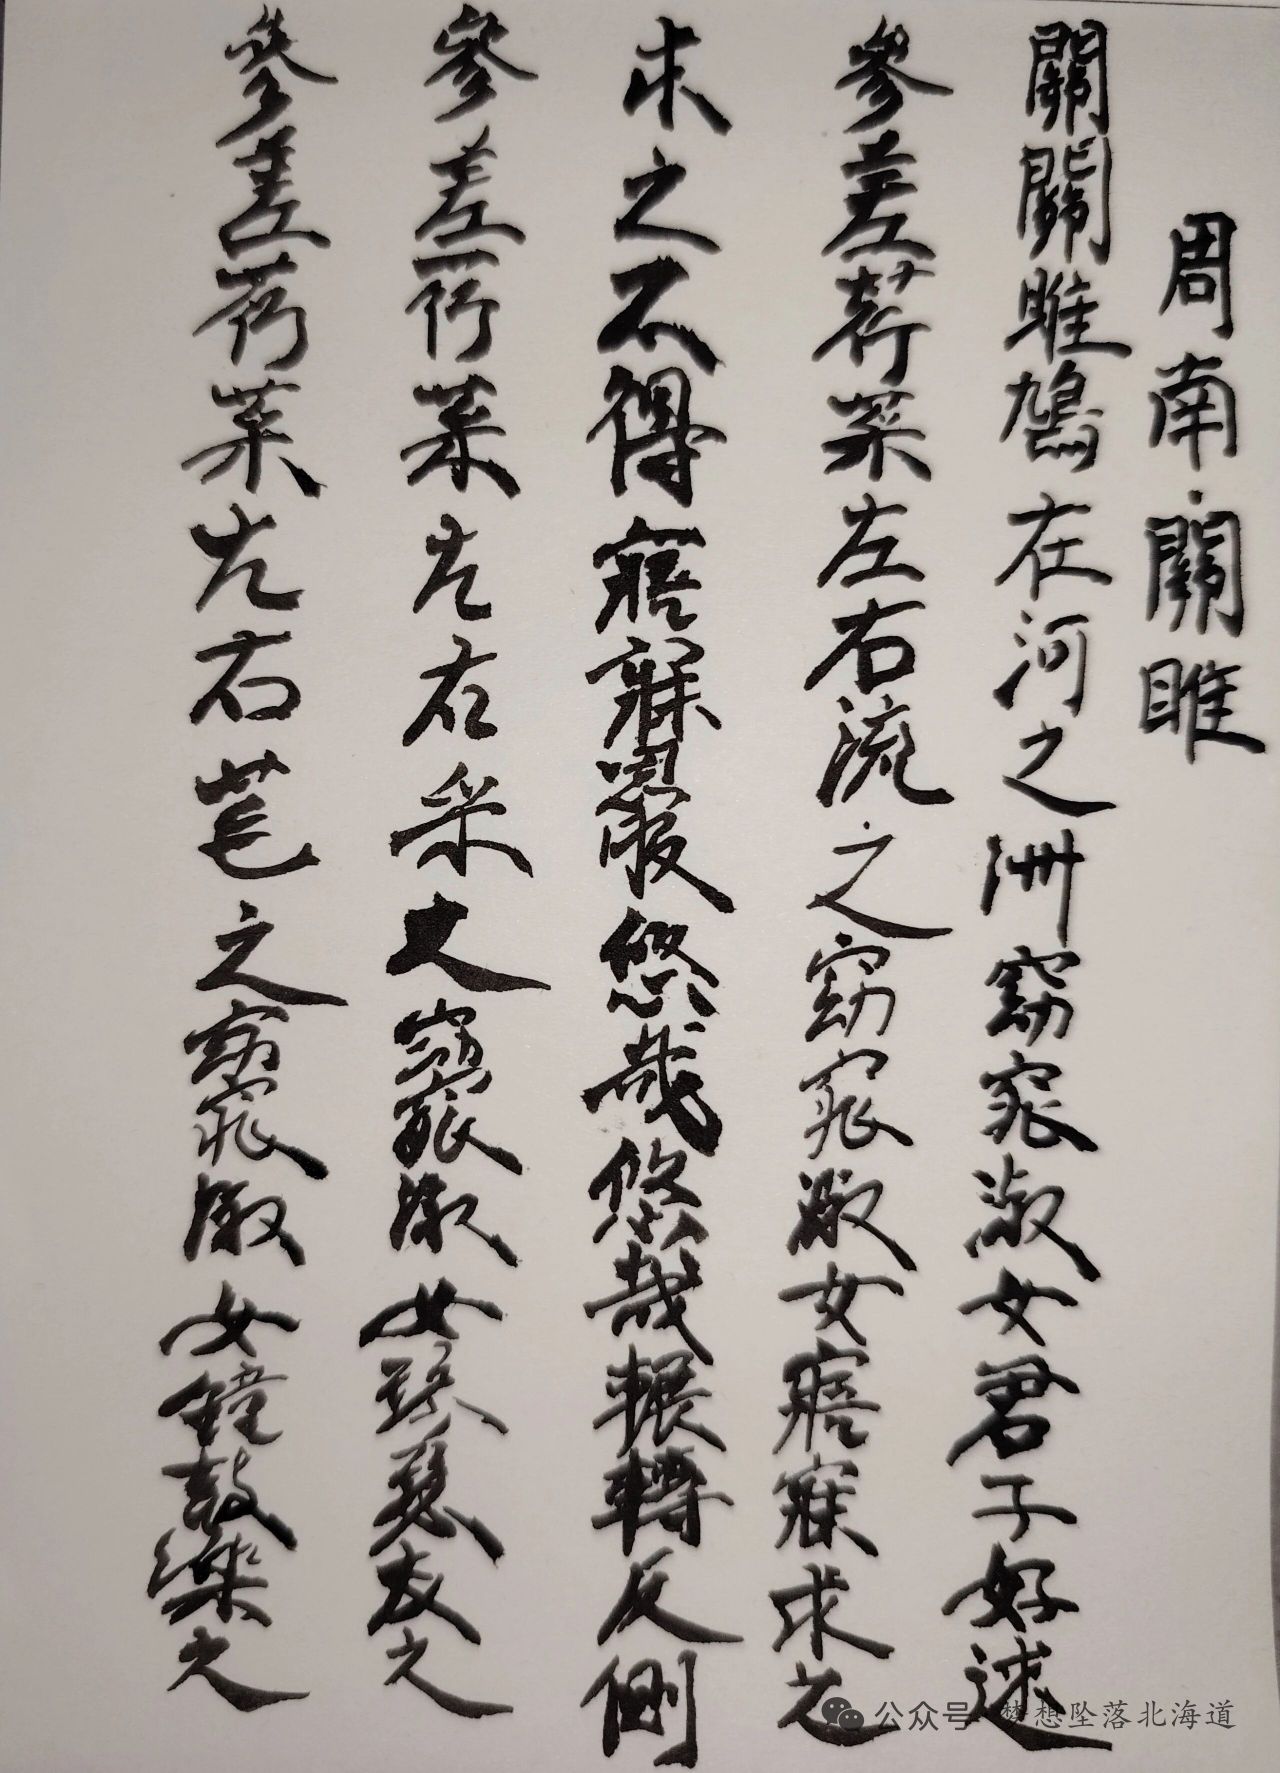 周南·關雎
關關雎鳩在河之洲窈窕淑女君子好逑
參差荇菜左右流之窈窕淑女寤寐求之
求之不得寤寐思服悠哉悠哉輾轉反側
參差荇菜左右采之窈窕淑女琴瑟友之
參差荇菜左右芼之窈窕淑女鐘鼓樂之
公众号·梦想坠落北海道